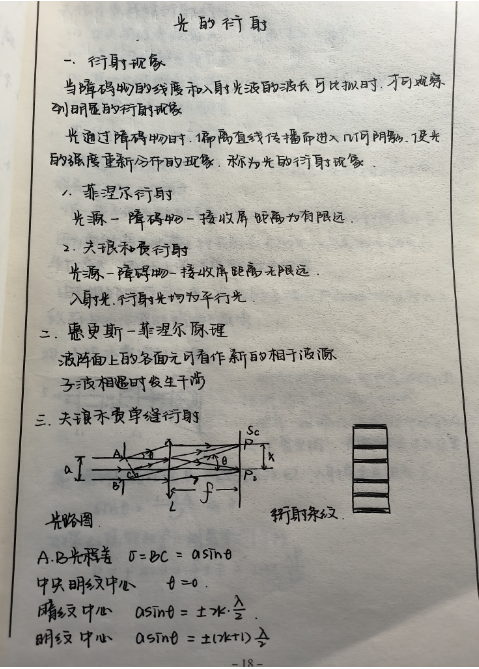 光的衍射
一. 衍射现象
当障碍物的线度和入射光波的波长可比拟时，才可观察
到明显的衍射现象
光通过障碍物时，偏离直线传播而进入几何阴影，使光
的强度重新分布的现象，称为光的衍射现象.
1. 菲涅尔衍射
光源-障碍物-接收屏 距离为有限远.
2. 夫琅禾费衍射
光源-障碍物-接收屏距离无限远.
入射光，衍射光均为平行光
二. 惠更斯-菲涅尔原理
波阵面上的各面元可看作新的相干波源
子波相遇时发生干涉
三. 夫琅禾费单缝衍射
Sc
A θ P
a C θ x
B f P₀
L
光路图
衍射条纹.
A.B光程差 δ=BC = asinθ
中央明纹中心 θ=0.
暗纹中心 asinθ = ±2k·λ/2
明纹中心 asinθ = ±(2k+1)λ/2
-18-